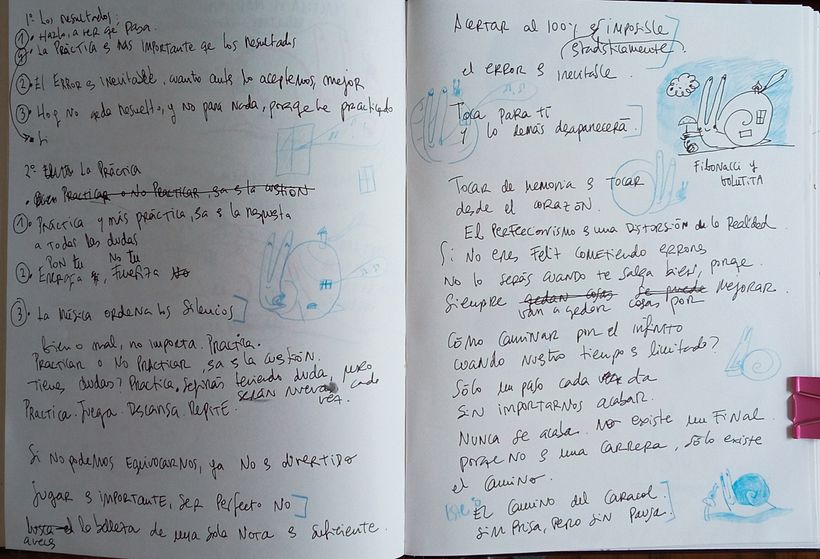 1º Los resultados:
① • Hazlo, a ver qe pasa.
• La Práctica es más importante qe los resultados
② El Error es inevitable, cuanto antes lo aceptemos, mejor
③ • Hoy no qeda resuelto, y no pasa nada, porqe he practicado
2º La Práctica
• Practicar o No Practicar, esa es la cuestión
① • Práctica y más práctica, esa es la respuesta
a todas las dudas
Pon tu No tu
② • Energía, Fuerza
③ • La música ordena los silencios
bien o mal, no importa. Practica.
Practicar o No Practicar, esa es la cuestión.
Tienes dudas? Practica. Seguirás teniendo duda, pero
serán nuevas cada
vez.
Practica. Juega. Descansa. Repite.
Si no podemos equivocarnos, ya no es divertido
Jugar es importante, ser perfecto No
a veces la belleza de una sola nota es suficiente.
Acertar al 100% es imposible
estadísticamente
el error es inevitable.
Toca para tí
y lo demás desaparecerá.
Fibonacci y
Tocar de memoria es tocar
desde el corazón.
El perfeccionismo es una distorsión de la realidad.
Si no eres feliz cometiendo errores
no lo serás cuando te salga bien, porqe
siempre qedan cosas se puede mejorar.
van a qedar cosas por
Cómo caminar por el infinito
cuando nuestro tiempo es limitado?
Sólo un paso cada día
sin importarnos acabar.
Nunca se acaba. No existe un final
porqe no es una carrera, sólo existe
el camino.
El camino del caracol.
Sin prisa, pero sin pausa.